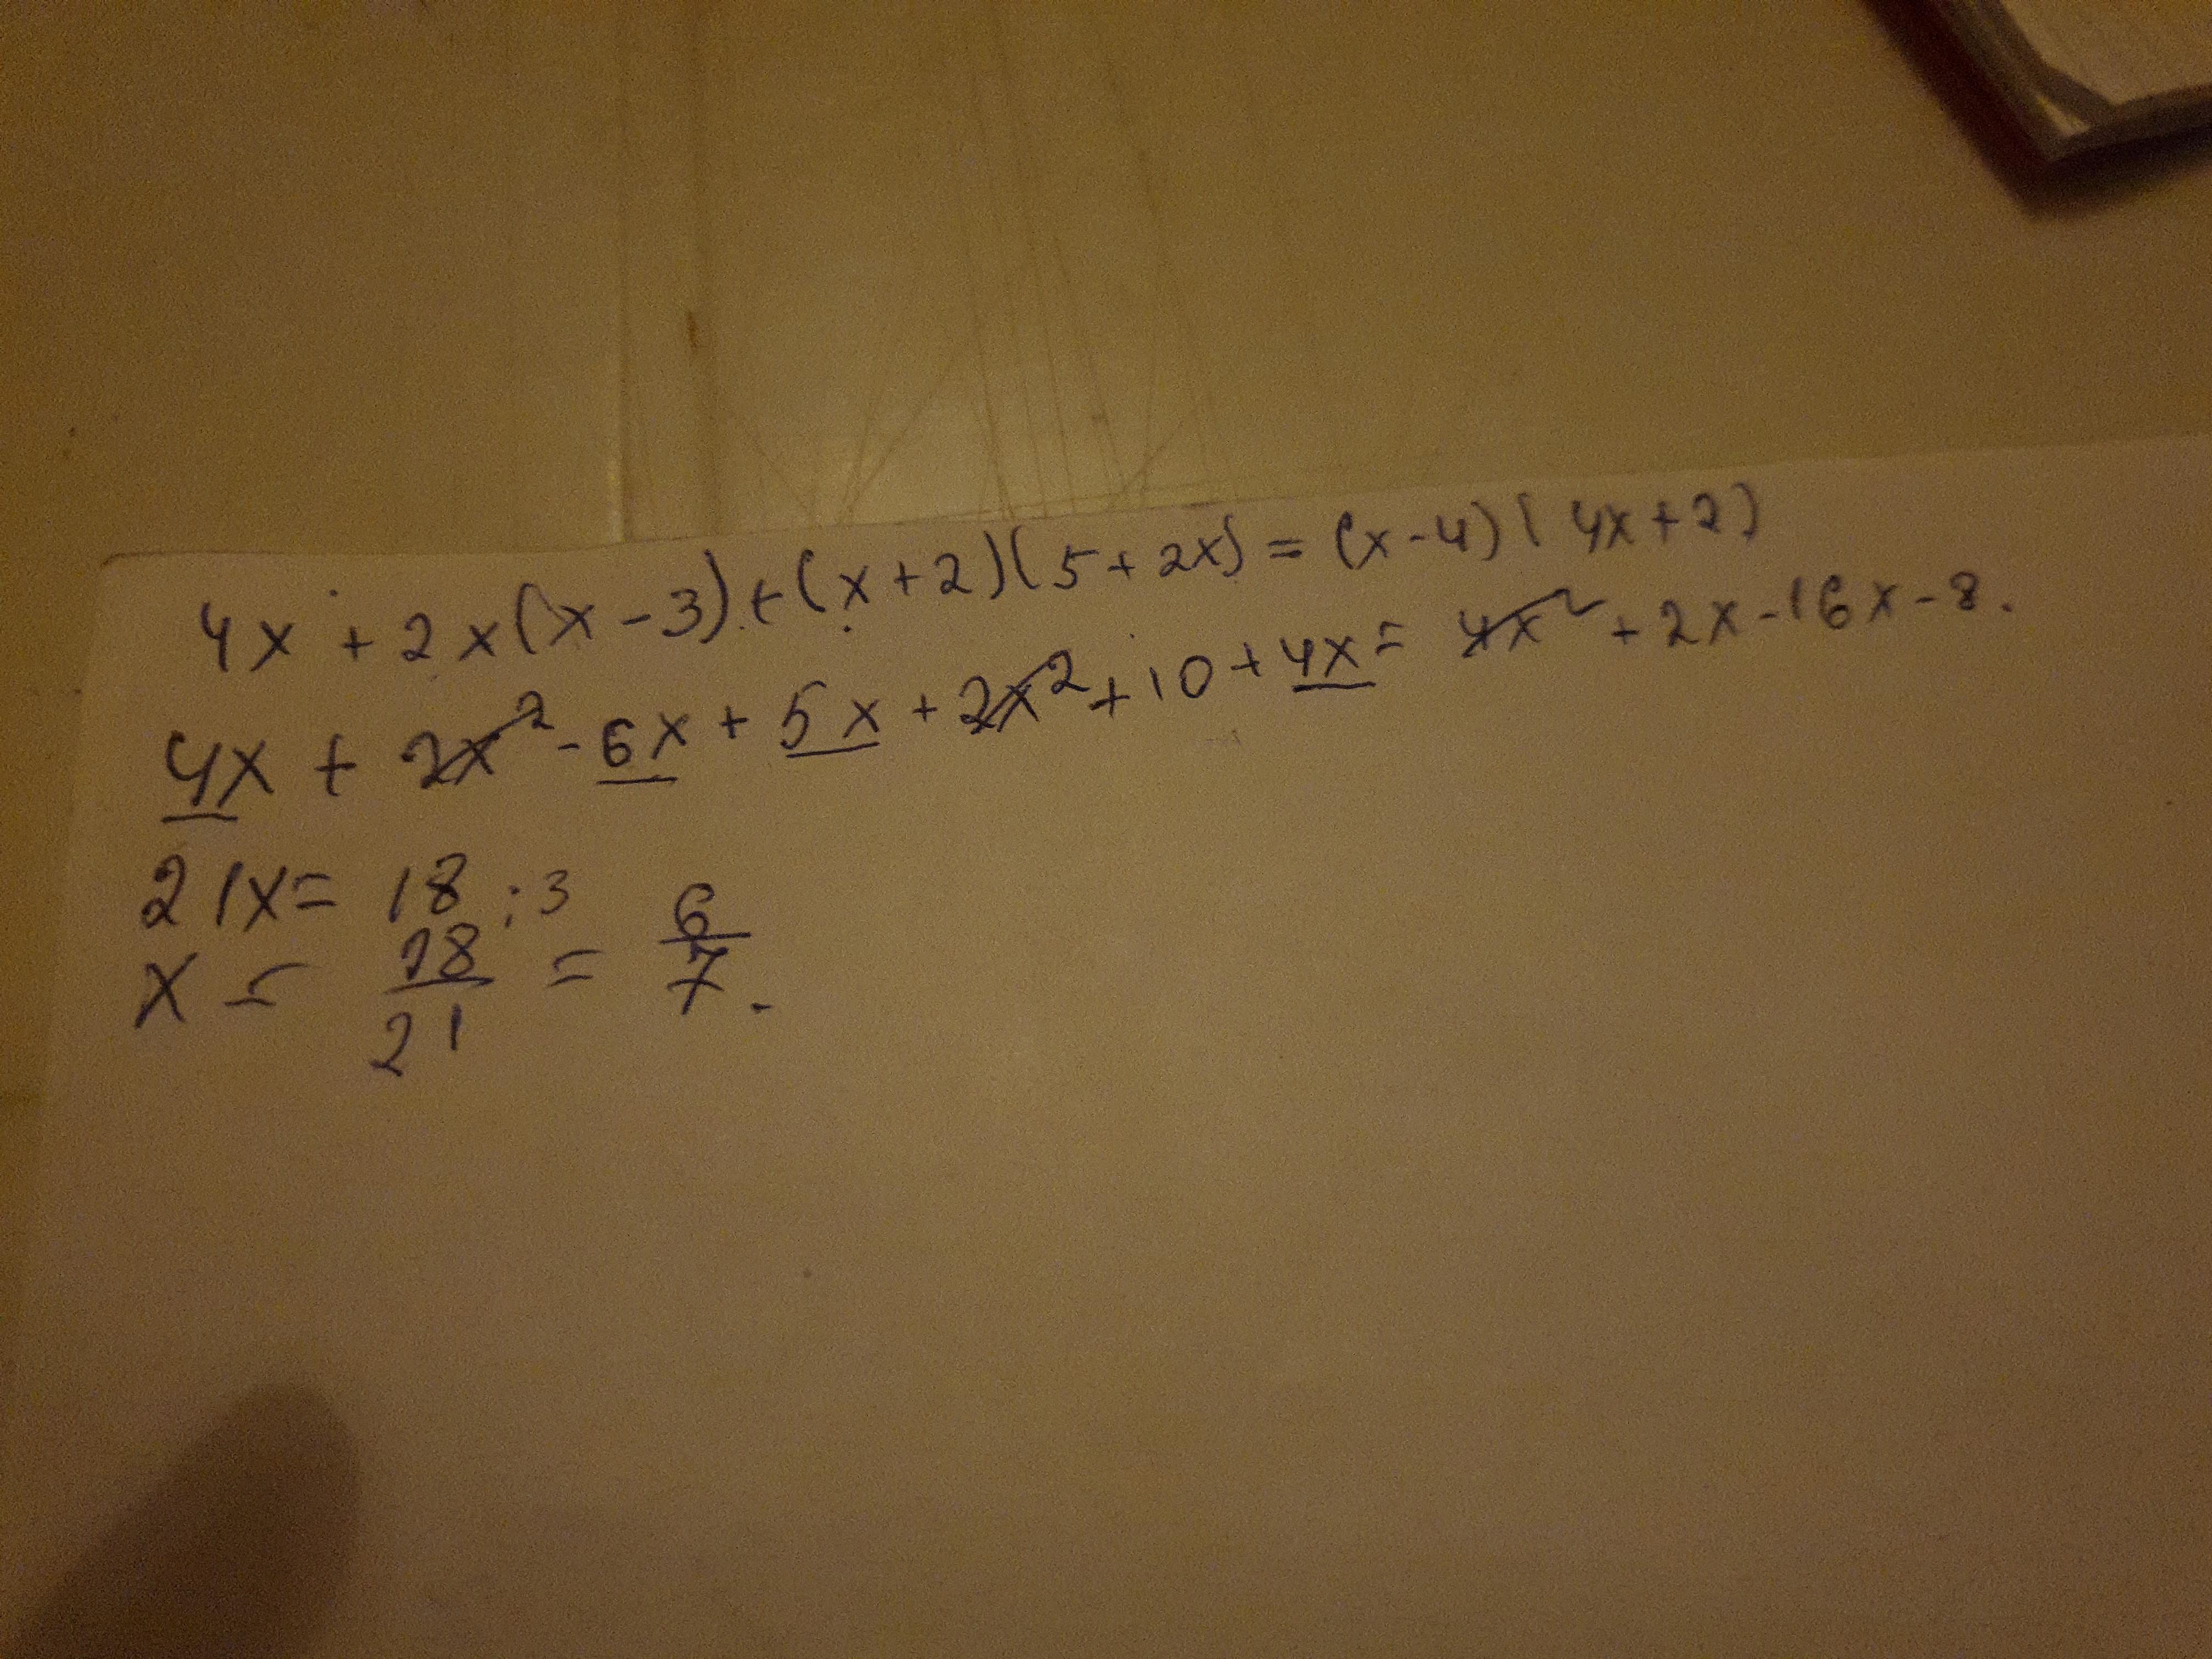 4x + 2x(x-3)+(x+2)(5+2x) = (x-4)(4x+2)
4x + 2x² - 6x + 5x + 2x² + 10 + 4x = 4x² + 2x - 16x - 8.
21x = 18 :3
x = 18/21 = 6/7.